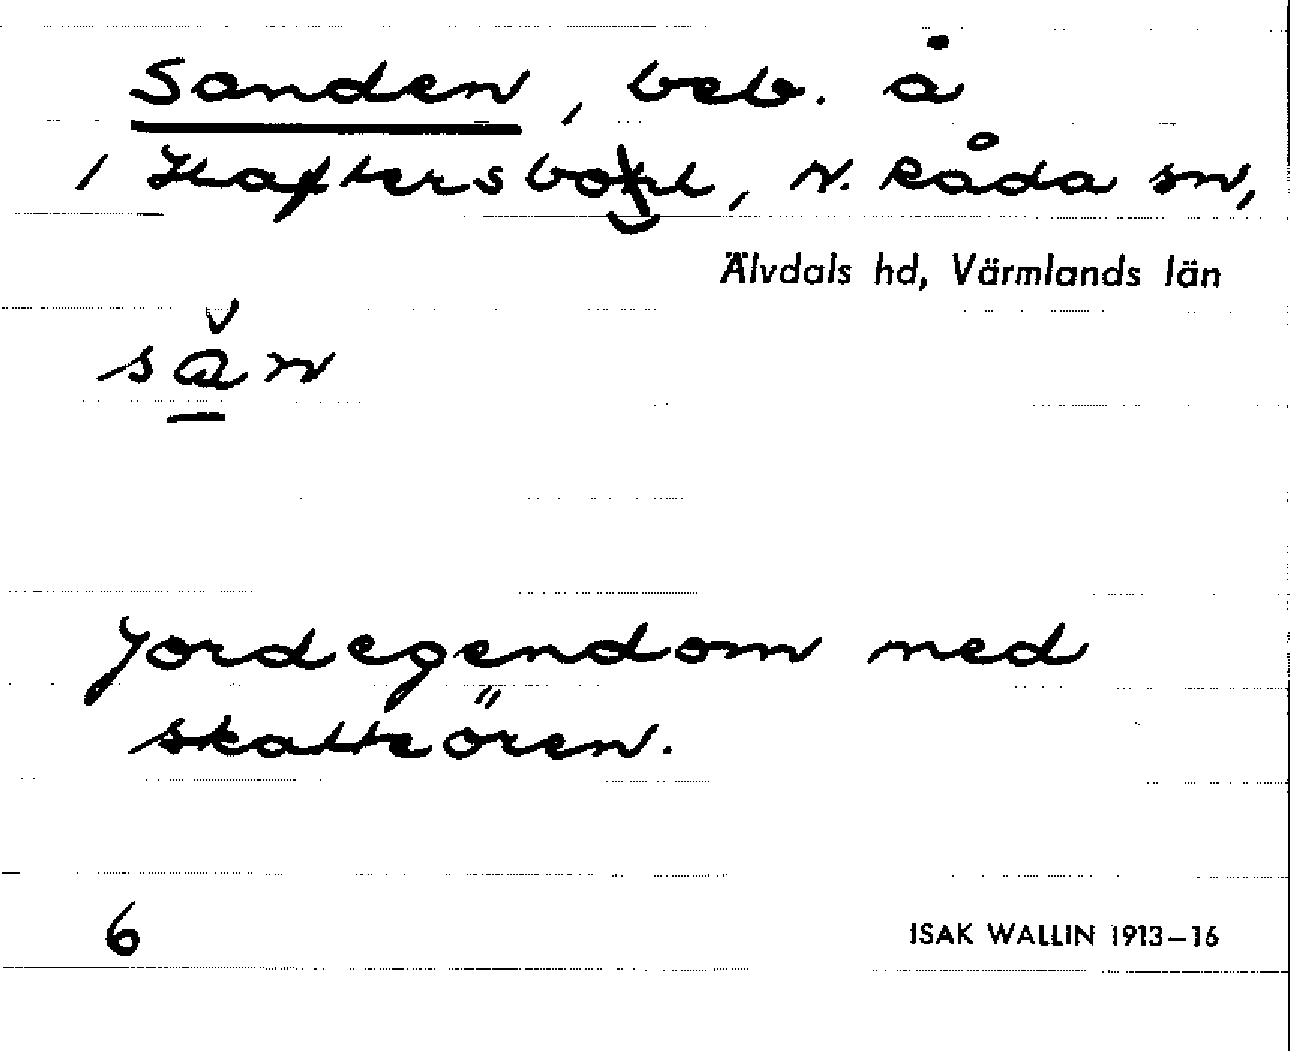 Sanden, beb. å
/ Haftersbohl, N. Råda sn,
Älvdals hd, Värmlands län
sǎn
Jordegendom med
skatteören.
6
ISAK WALLIN 1913–16